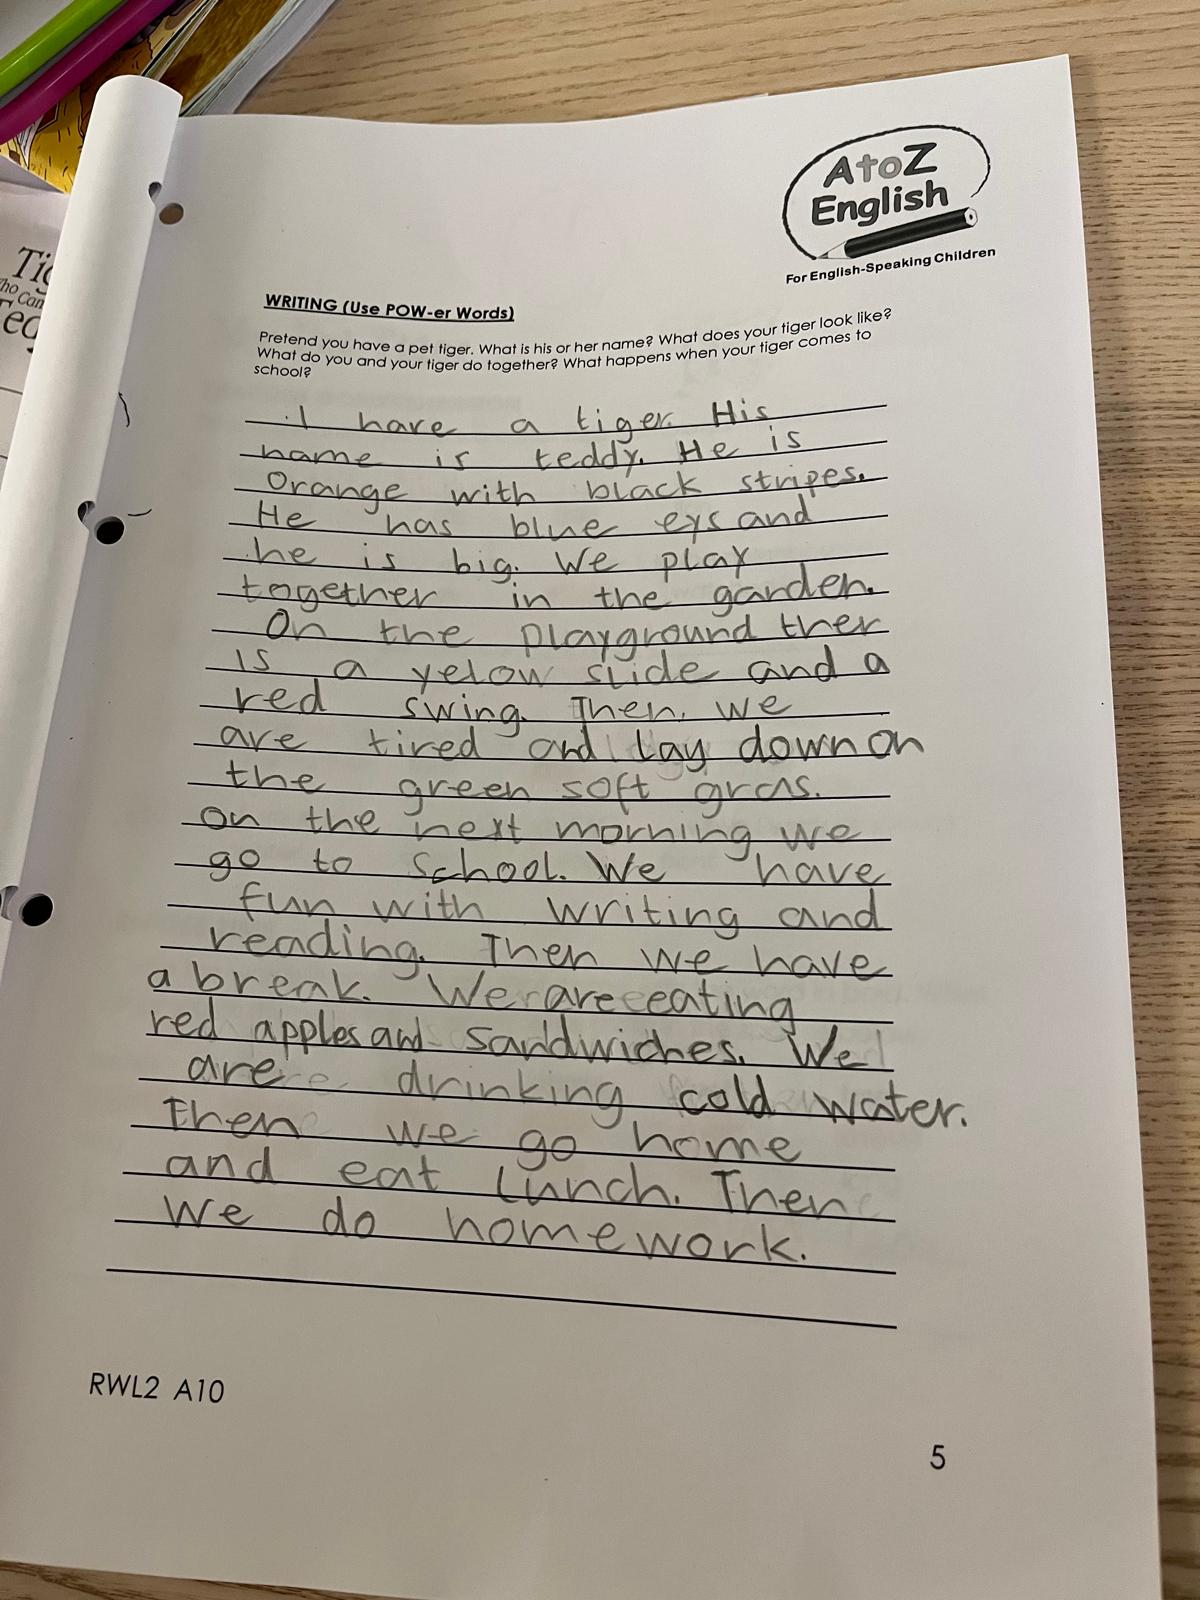 AtoZ
English
For English-Speaking Children
WRITING (Use POW-er Words)
Pretend you have a pet tiger. What is his or her name? What does your tiger look like?
What do you and your tiger do together? What happens when your tiger comes to
school?
I have a tiger. His
name is teddy. He is
Orange with black stripes.
He has blue eys and
he is big. We play
together in the garden.
On the playground ther
is a yelow slide and a
red swing. Then, we
are tired and lay down on
the green soft gras.
on the next morning we
go to school. We have
fun with writing and
reading. Then we have
a break. We are eating
red apples and sandwiches. We
are drinking cold water.
Then we go home
and eat lunch. Then
we do homework.
RWL2 A10
5